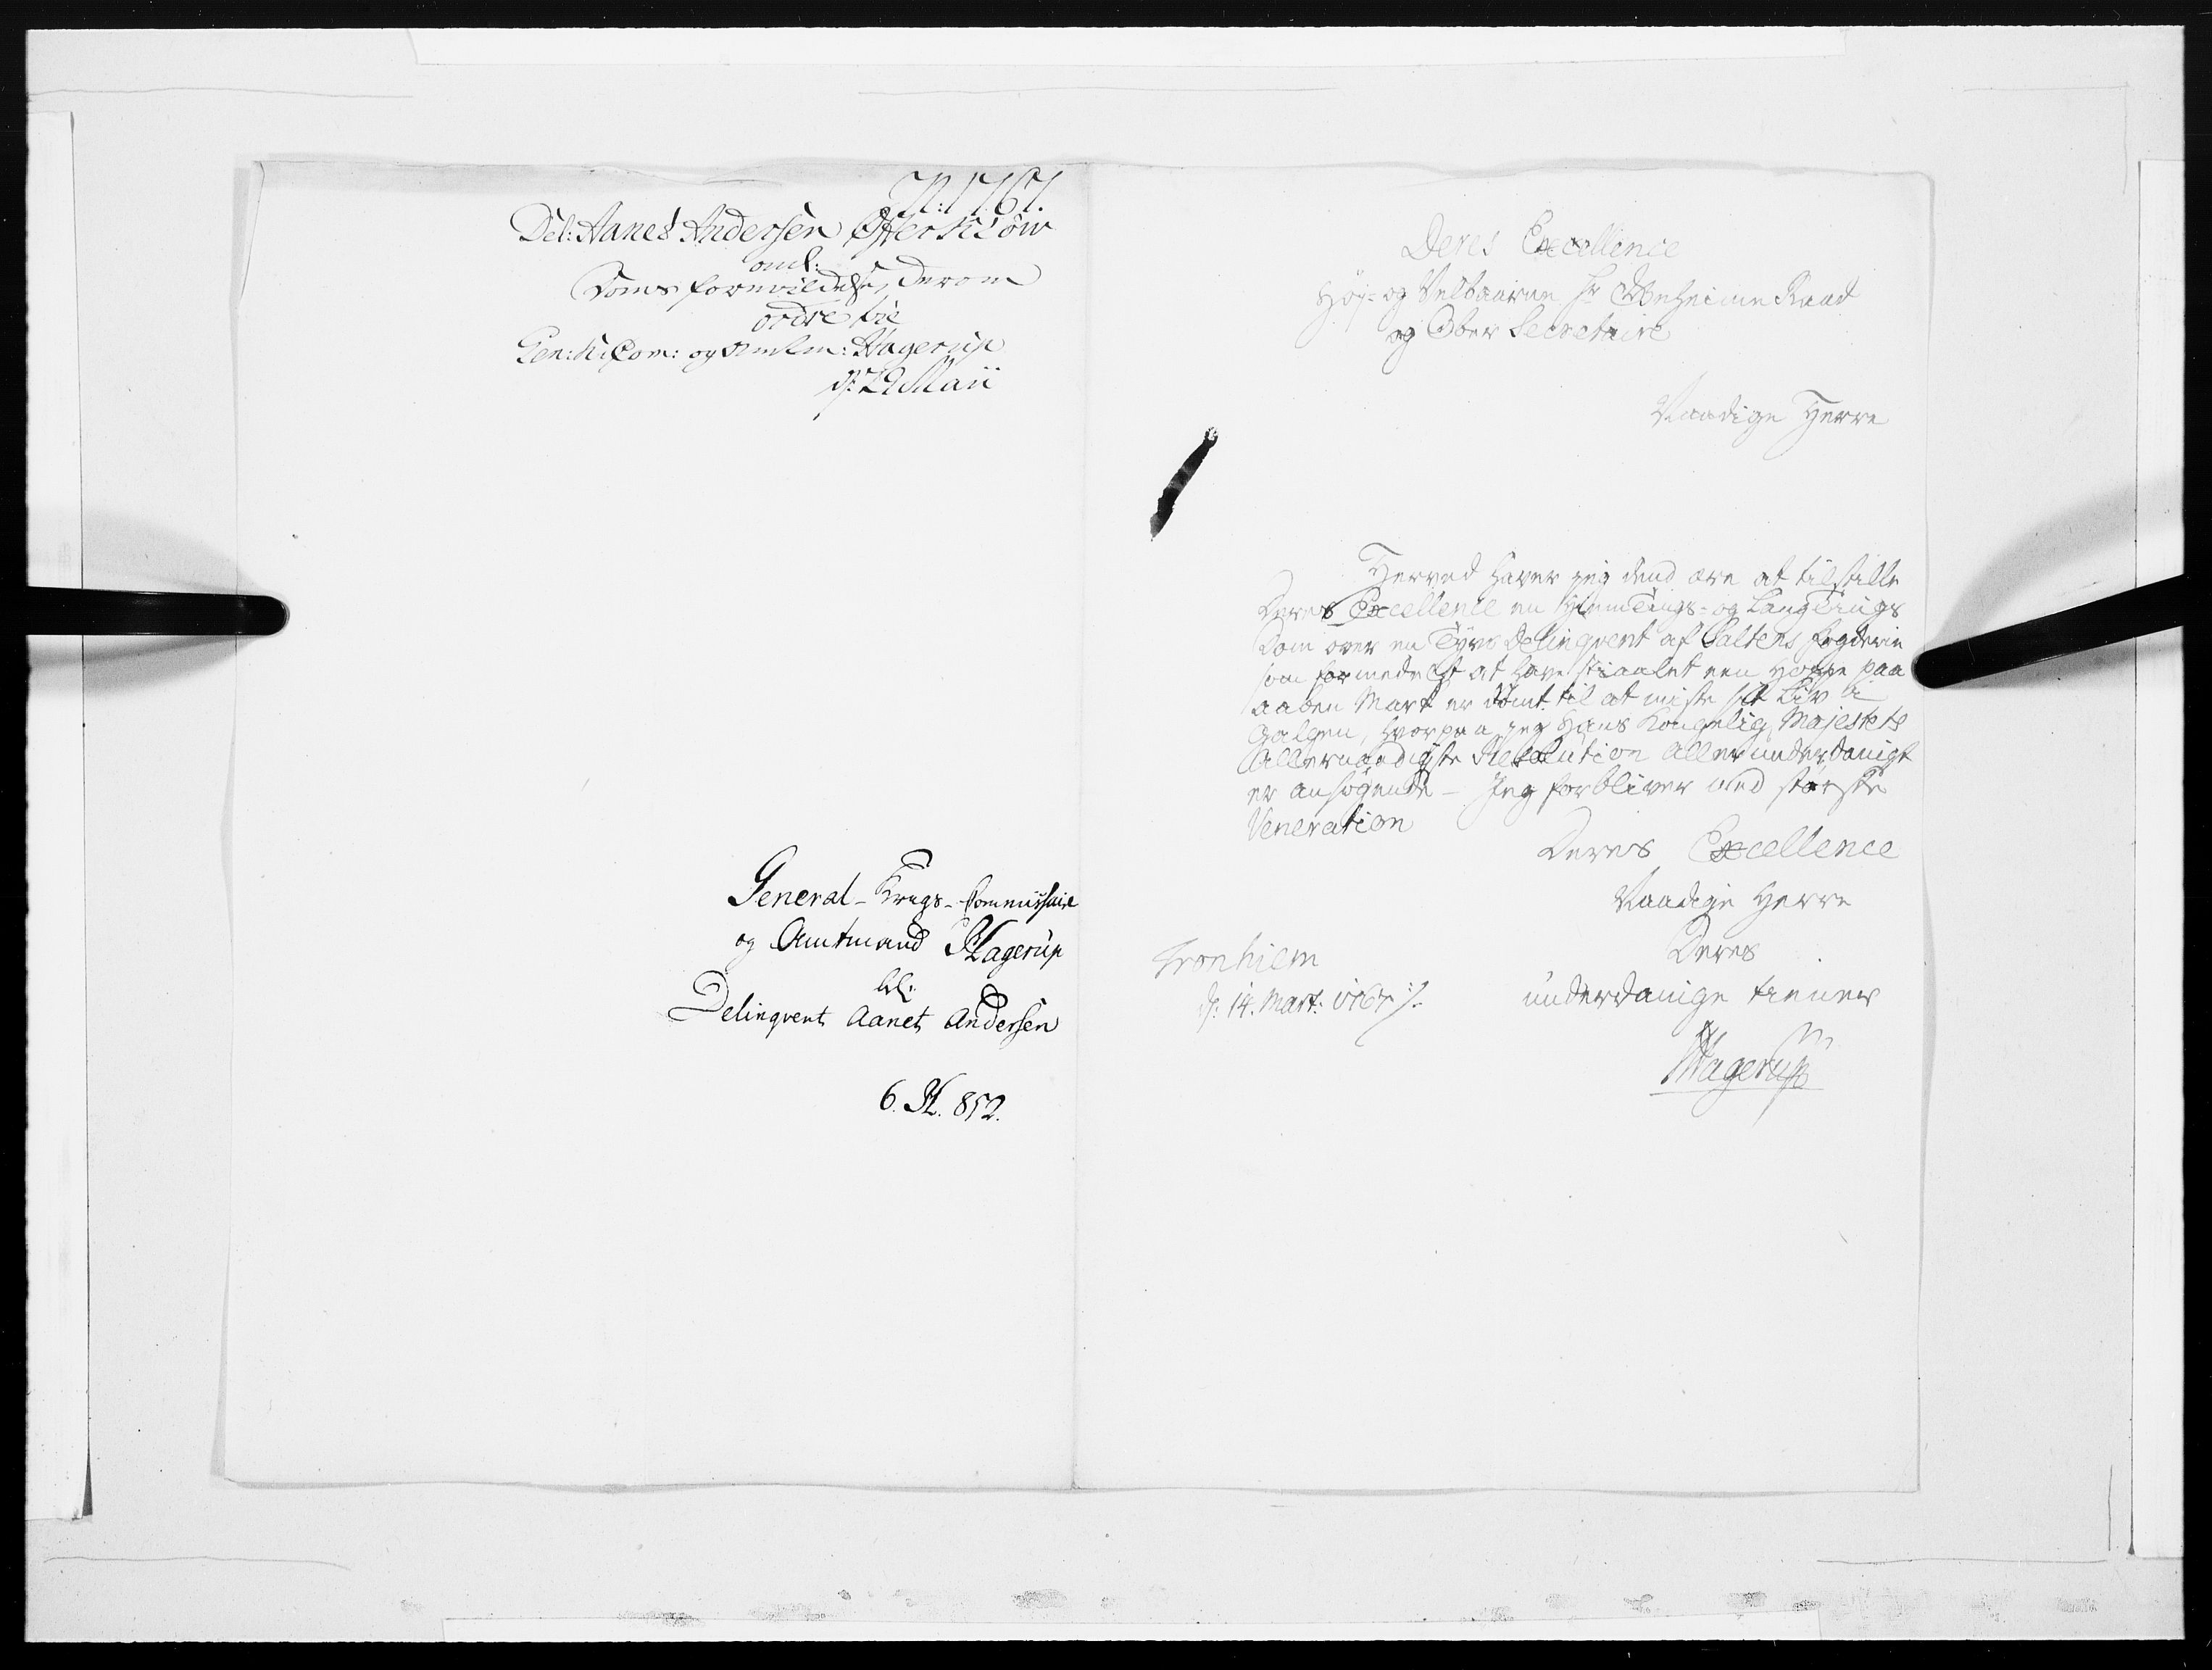 N: 1767.
Del: Aanet Andersen
anl:
Doms formildelse, derom
ordre til
Gen: K: Com: og Amtm: Hagerup
d: 29 Maii
General-Krigs-Commissaire
og Amtmand Hagerup
bl:
Delinqvent Aanet Andersen
6. H. 852.
Deres Excellence
Høj- og Velbaarne Hr Geheime Raad
og Ober Secretaire
Naadige Herre
Herved haver jeg dend ære at tilstille
Deres Excellence en Hiemtings- og Laugtings
Dom over en Tyvs Delinqvent af Saltens Fogderie
som formedelst at have stiaalet een Hoppe paa
aaben Mark er dømt til at miste sit Liv i
Galgen, hvorpaa jeg Hans Kongelig Majestets
Allernaadigste Resolution allerunderdanigst
er ansøgende - Jeg forbliver med største
Veneration
Deres Excellence
Naadige Herre
Deres
underdanige tiener
Hagerup
Tronhiem
d: 14. Mart: 1767